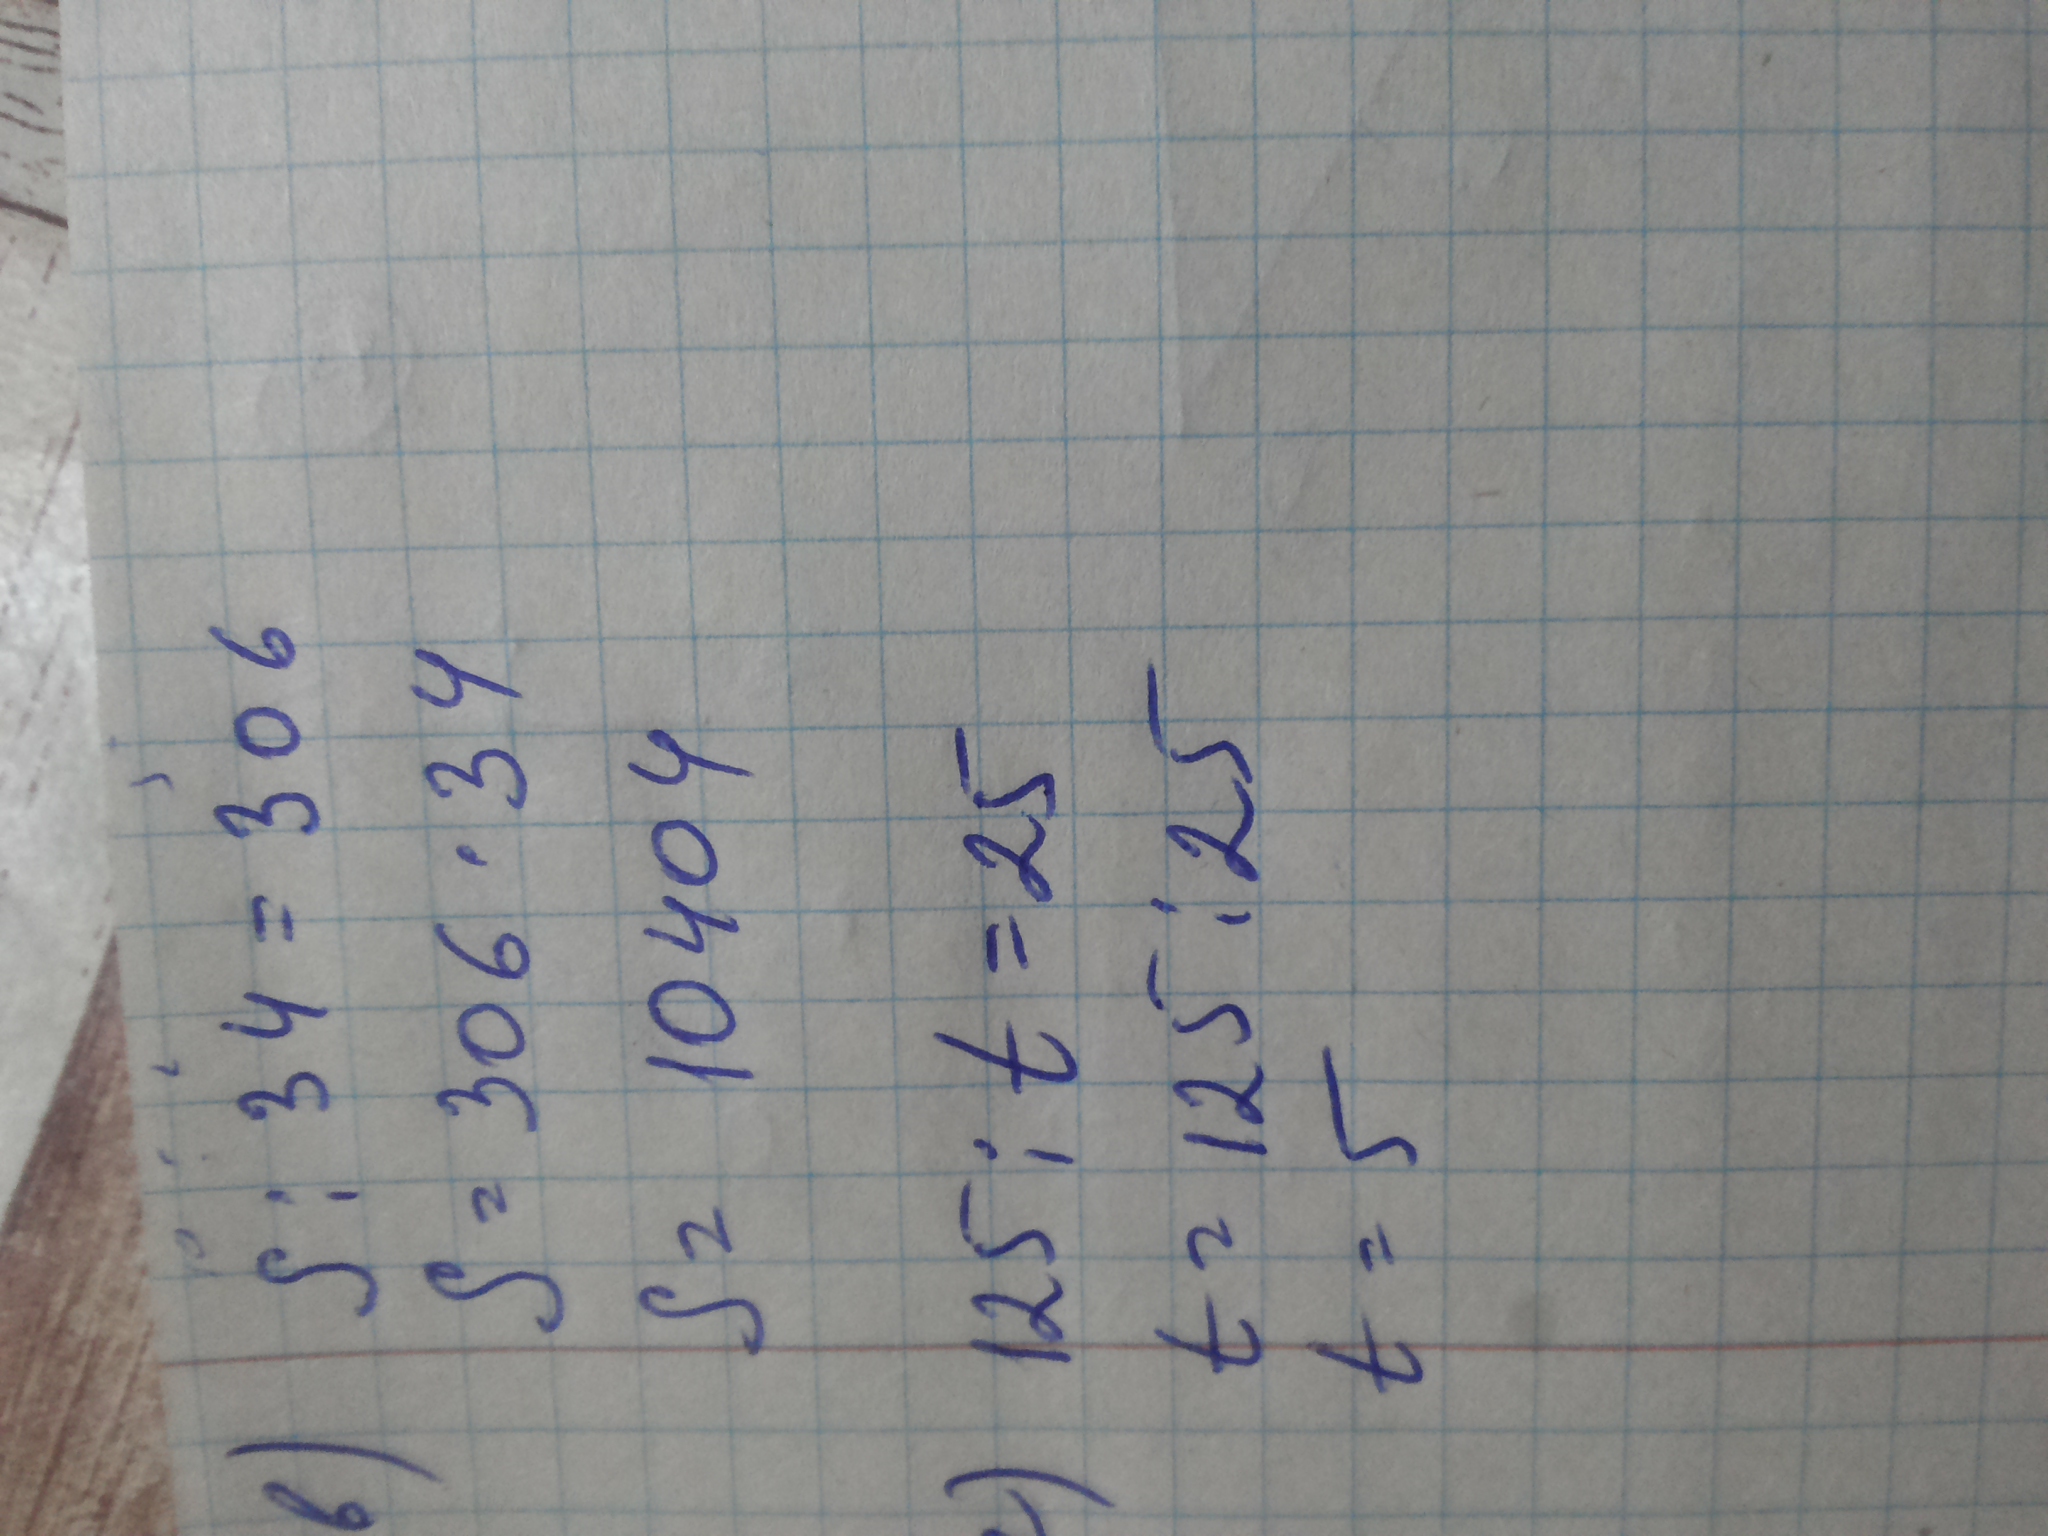 в) S : 34 = 306
S = 306 · 34
S = 10404
г) 125 : t = 25
t = 125 : 25
t = 5